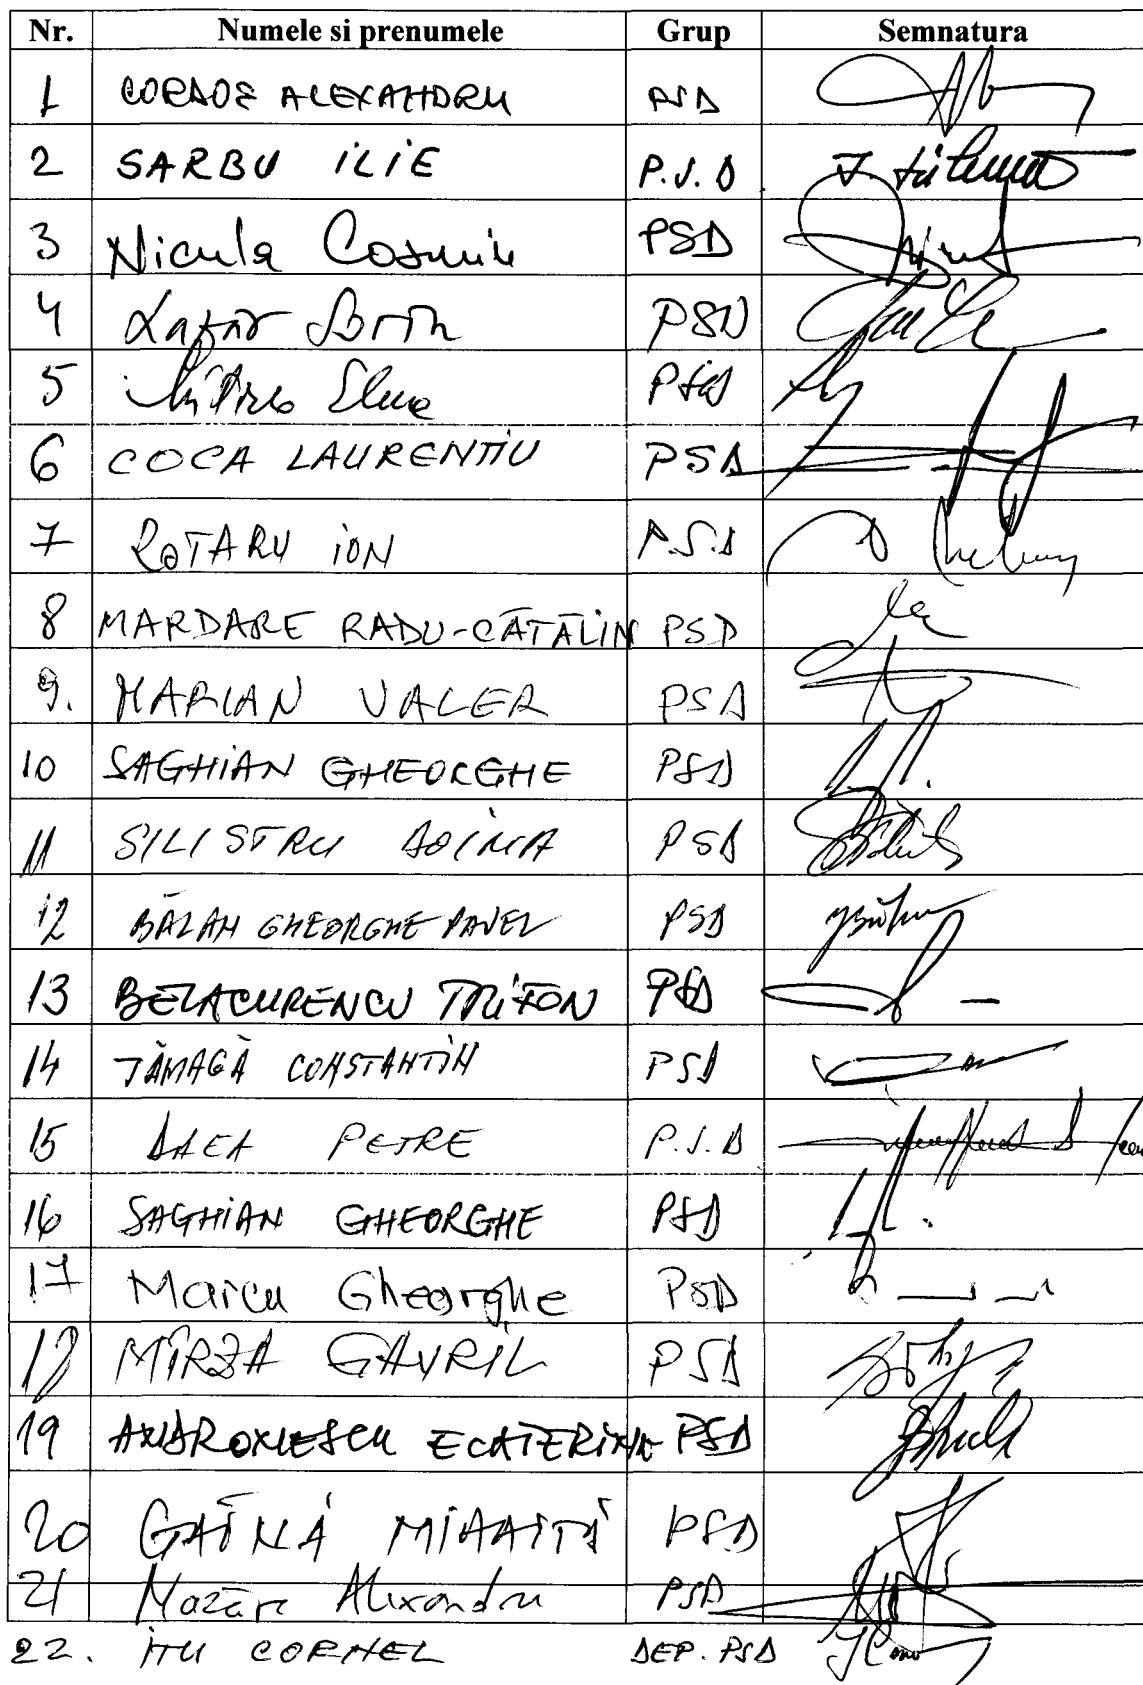 Nr. Numele si prenumele Grup Semnatura
1 CORDOȘ ALEXANDRU PSD
2 SARBU ILIE P.S.D
3 Nicula Cosmin PSD
4 Lazăr Sorin PSD
5 Mitrea Elena PSD
6 COCA LAURENTIU PSD
7 ROTARU ION P.S.D
8 MARDARE RADU-CĂTĂLIN PSD
9. MARIAN VALER PSD
10 SAGHIAN GHEORGHE PSD
11 SILISTRU DOINA PSD
12 BĂLAN GHEORGHE PAVEL PSD
13 BELACURENCU TRIFON PSD
14 TĂMAGĂ CONSTANTIN PSD
15 DAEA PETRE P.S.D
16 SAGHIAN GHEORGHE PSD
17 Marcu Gheorghe PSD
18 MÎRZA GAVRIL PSD
19 ANDRONESCU ECATERINA PSD
20 GĂINĂ MIHĂIȚĂ PSD
21 Mazăre Alexandru PSD
22. ITU CORNEL DEP. PSD